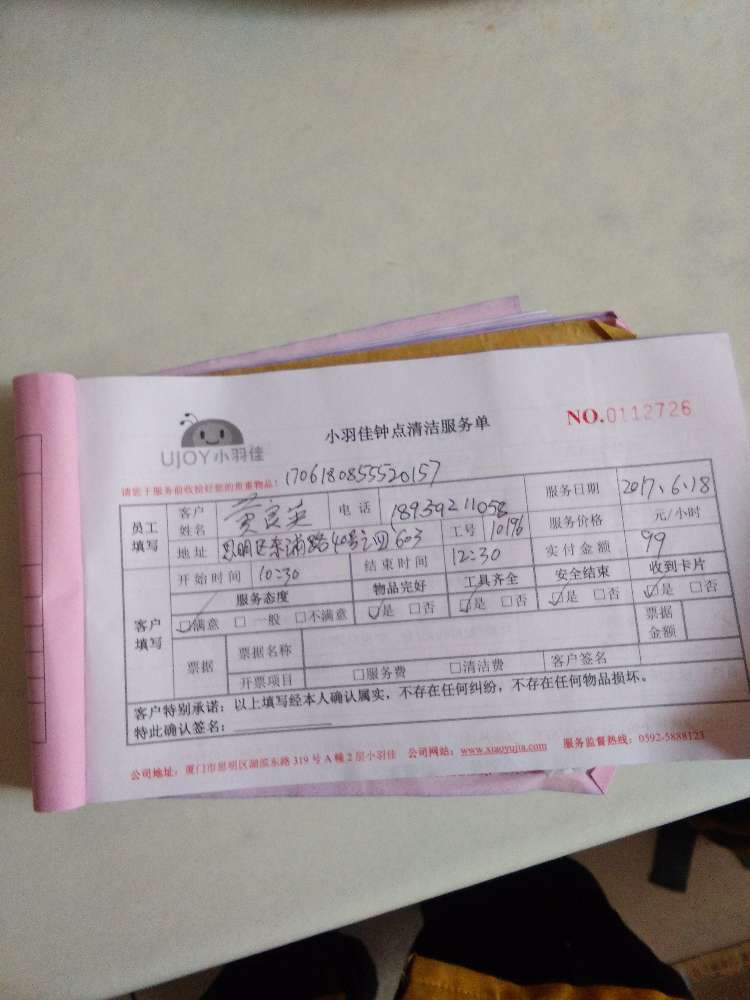 UJOY小羽佳
小羽佳钟点清洁服务单
NO.0112726
请您于服务前收检好您的贵重物品:
170618085552０157
员工填写 客户姓名 黄良英 电话 18939211058 服务日期 2017、6、18
地址 思明区 路40号之四603 工号 10196 服务价格 元/小时
客户填写 开始时间 10:30 结束时间 12:30 实付金额 99
服务态度 物品完好 工具齐全 安全结束 收到卡片
☑满意 □一般 □不满意 ☑是 □否 ☑是 □否 ☑是 □否 ☑是 □否
票据 票据名称 票据金额
开票项目 □服务费 □清洁费 客户签名
客户特别承诺:以上填写经本人确认属实,不存在任何纠纷,不存在任何物品损坏。
特此确认签名:
公司地址:厦门市思明区湖滨东路319号A幢2层小羽佳 公司网站:www.xiaoyujia.com 服务监督热线:0592-5888123